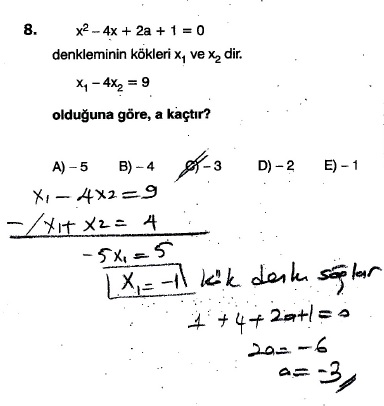 8. x² – 4x + 2a + 1 = 0
denkleminin kökleri x₁ ve x₂ dir.
x₁ – 4x₂ = 9
olduğuna göre, a kaçtır?
A) – 5 B) – 4 C) – 3 D) – 2 E) – 1
x₁ – 4x₂ = 9
–/ x₁ + x₂ = 4
– 5x₁ = 5
x₁ = –1 kök denk sağlar
1 + 4 + 2a + 1 = 0
2a = –6
a = –3